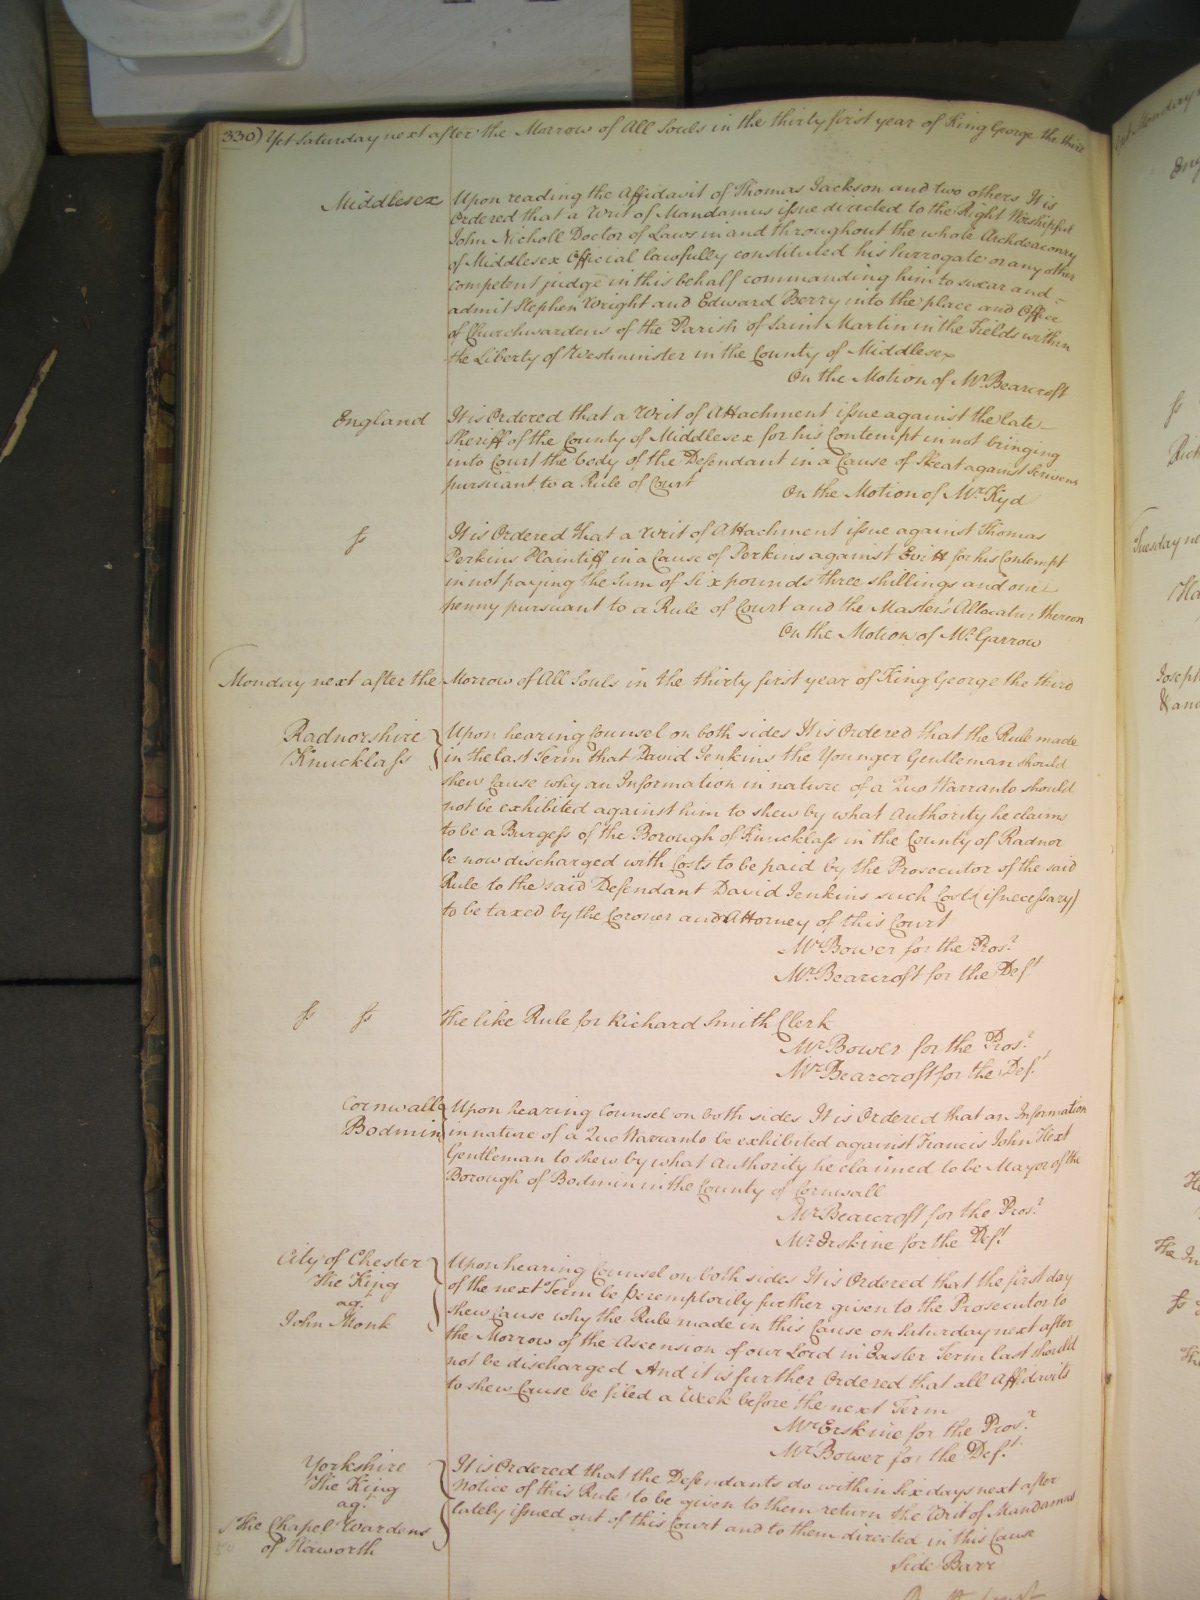 330) Yet Saturday next after the Morrow of All Souls in the thirty first year of King George the third
Middlesex Upon reading the Affidavit of Thomas Jackson and two others It is
Ordered that a Writ of Mandamus issue directed to the Right Worshipful
John Nicholl Doctor of Laws in and throughout the whole Archdeaconry
of Middlesex Official lawfully constituted his Surrogate or any other
competent judge in this behalf commanding him to swear and
admit Stephen Wright and Edward Berry into the place and Office
of Churchwardens of the Parish of Saint Martin in the Fields within
the Liberty of Westminster in the County of Middlesex
On the Motion of Mr. Bearcroft
England It is Ordered that a Writ of Attachment issue against the late
Sheriff of the County of Middlesex for his Contempt in not bringing
into Court the body of the Defendant in a Cause of Skeat against Scrivens
pursuant to a Rule of Court On the Motion of Mr. Kyd
Is It is Ordered that a Writ of Attachment issue against Thomas
Perkins Plaintiff in a Cause of Perkins against Evitt for his Contempt
in not paying the Sum of Six pounds three shillings and one
penny pursuant to a Rule of Court and the Master's Allocatur thereon
On the Motion of Mr. Garrow
Monday next after the Morrow of All Souls in the thirty first year of King George the third
Radnorshire Upon hearing Counsel on both sides It is Ordered that the Rule made
Knucklass in the last Term that David Jenkins the Younger Gentleman should
shew Cause why an Information in nature of a Quo Warranto should
not be exhibited against him to shew by what Authority he claims
to be a Burgess of the Borough of Knucklass in the County of Radnor
be now discharged with Costs to be paid by the Prosecutor of the said
Rule to the said Defendant David Jenkins such Costs (if necessary)
to be taxed by the Coroner and Attorney of this Court
Mr. Bower for the Pros.r
Mr. Bearcroft for the Def.t
Is Is The like Rule for Richard Smith Clerk
Mr. Bower for the Pros.r
Mr. Bearcroft for the Def.t
Cornwall Upon hearing Counsel on both sides It is Ordered that an Information
Bodmin in nature of a Quo Warranto be exhibited against Francis John Hext
Gentleman to shew by what Authority he claimed to be Mayor of the
Borough of Bodmin in the County of Cornwall
Mr. Bearcroft for the Pros.r
Mr. Erskine for the Def.t
City of Chester Upon hearing Counsel on both sides It is Ordered that the first day
The King of the next Term be peremptorily further given to the Prosecutor to
ag. shew Cause why the Rule made in this Cause on Saturday next after
John Monk the Morrow of the Ascension of our Lord in Easter Term last should
not be discharged And it is further Ordered that all Affidavits
to shew Cause be filed a Week before the next Term
Mr. Erskine for the Pros.r
Mr. Bower for the Def.t
Yorkshire It is Ordered that the Defendants do within Six days next after
The King Notice of this Rule to be given to them return the Writ of Mandamus
ag. lately issued out of this Court and to them directed in this Cause
The Chapel Wardens
of Haworth
Side Barr